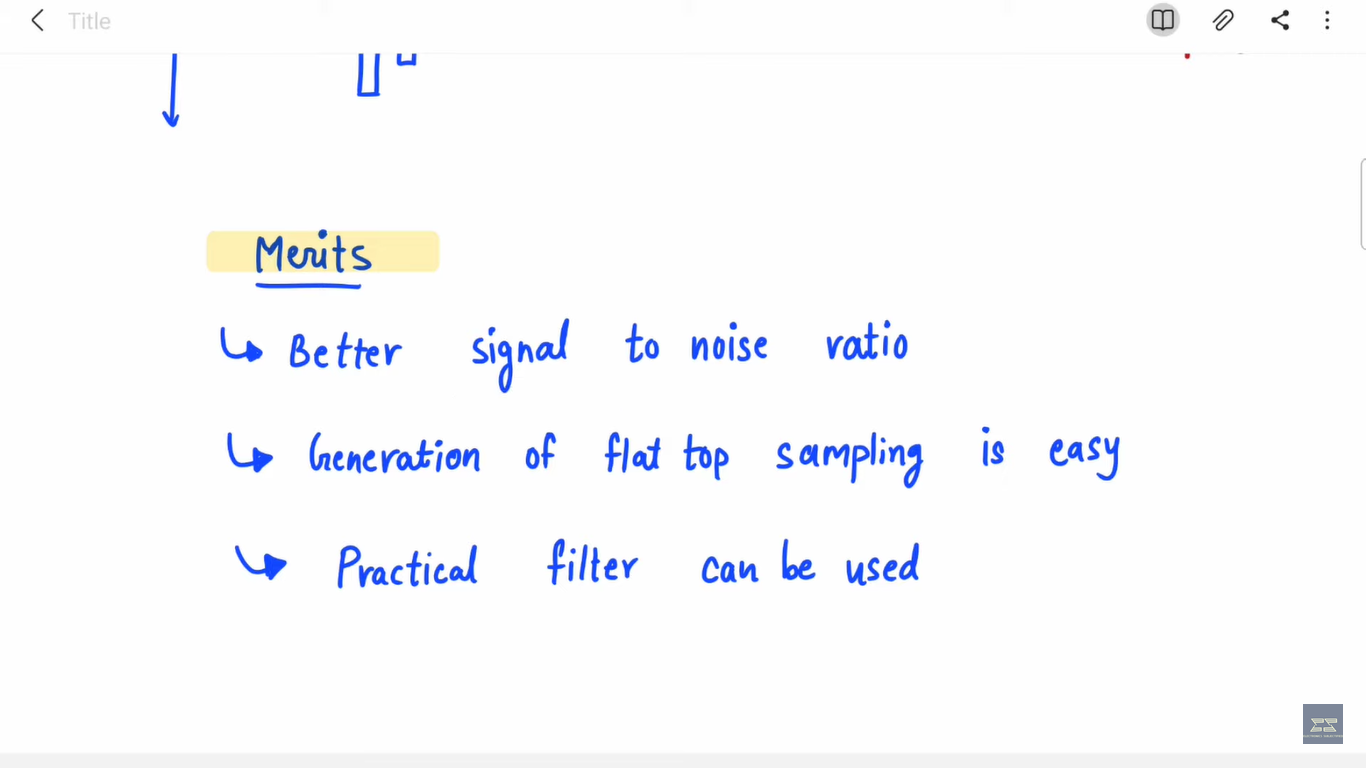 Title
Merits
Better signal to noise ratio
Generation of flat top sampling is easy
Practical filter can be used